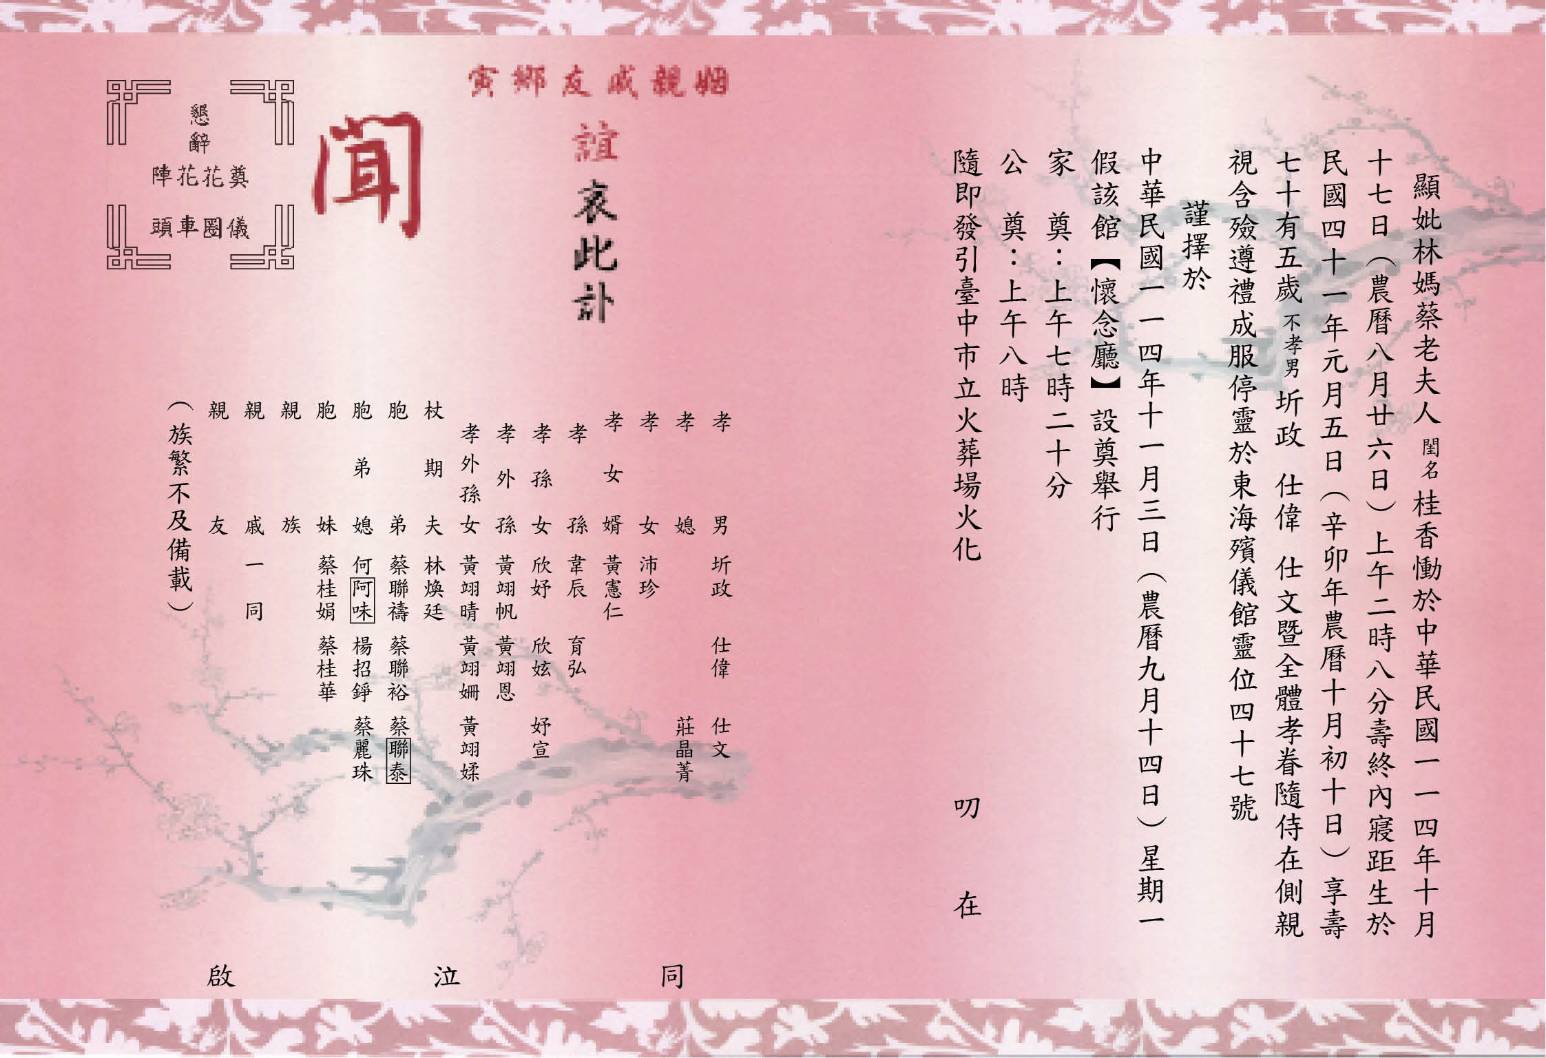 顯妣林媽蔡老夫人閨名桂香慟於中華民國一一四年十月
十七日（農曆八月廿六日）上午二時八分壽終內寢距生於
民國四十一年元月五日（辛卯年農曆十月初十日）享壽
七十有五歲不孝男圻政 仕偉 仕文暨全體孝眷隨侍在側親
視含殮遵禮成服停靈於東海殯儀館靈位四十七號
謹擇於
中華民國一一四年十一月三日（農曆九月十四日）星期一
假該館【懷念廳】設奠舉行
家 奠：上午七時二十分
公 奠：上午八時
隨即發引臺中市立火葬場火化
叨 在
姻親戚友鄉寅
誼哀此訃
聞
懇辭
奠花花陣
儀圈車頭
孝男 圻政 仕偉 仕文
孝媳 莊晶菁
孝女 沛珍
孝女婿 黃憲仁
孝孫 韋辰 育弘
孝孫女 欣妤 欣妶 妤宣
孝外孫 黃翊帆 黃翊恩
孝外孫女 黃翊晴 黃翊姍 黃翊媃
杖期夫 林煥廷
胞弟 蔡聯禱 蔡聯裕 蔡聯泰
胞弟媳 何阿味 楊招錚 蔡麗珠
胞妹 蔡桂娟 蔡桂華
親族
親戚 一同
親友
（族繁不及備載）
同 泣 啟